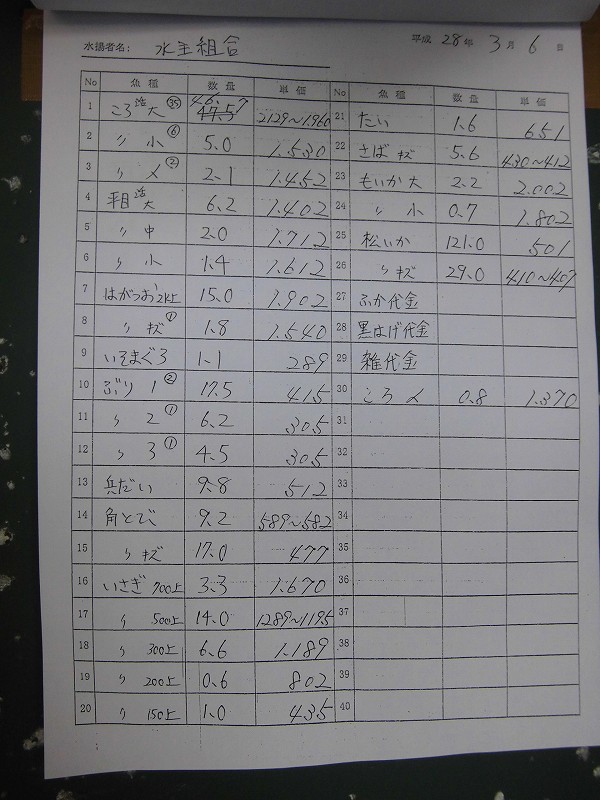 水揚者名： 水主組合 平成 28年 3月 6日
No 魚種 数量 単価 No 魚種 数量 単価
1 ころ 活大 ㉟ 46.7 47.57 2129〜1.960 21 たい 1.6 651
2 〃 小 ⑥ 5.0 1.530 22 さば キズ 5.6 430〜412
3 〃 〆 ② 2.1 1.452 23 もいか 大 2.2 2.002
4 平目 活大 6.2 1.402 24 〃 小 0.7 1.802
5 〃 中 2.0 1.712 25 松いか 121.0 501
6 〃 小 1.4 1.612 26 〃 キズ 29.0 410〜407
7 はがつお 2K上 15.0 1.902 27 ふか代金
8 〃 キズ ① 1.8 1.540 28 黒はげ代金
9 いそまぐろ 1.1 289 29 雑代金
10 ぶり 1 ② 17.5 415 30 ころ 〆 0.8 1.370
11 〃 2 ① 6.2 305 31
12 〃 3 ① 4.5 305 32
13 兵だい 9.8 512 33
14 角とび 9.2 589〜582 34
15 〃 キズ 17.0 477 35
16 いさぎ 700上 3.3 1.670 36
17 〃 500上 14.0 1289〜1195 37
18 〃 300上 6.6 1.189 38
19 〃 200上 0.6 802 39
20 〃 150上 1.0 435 40